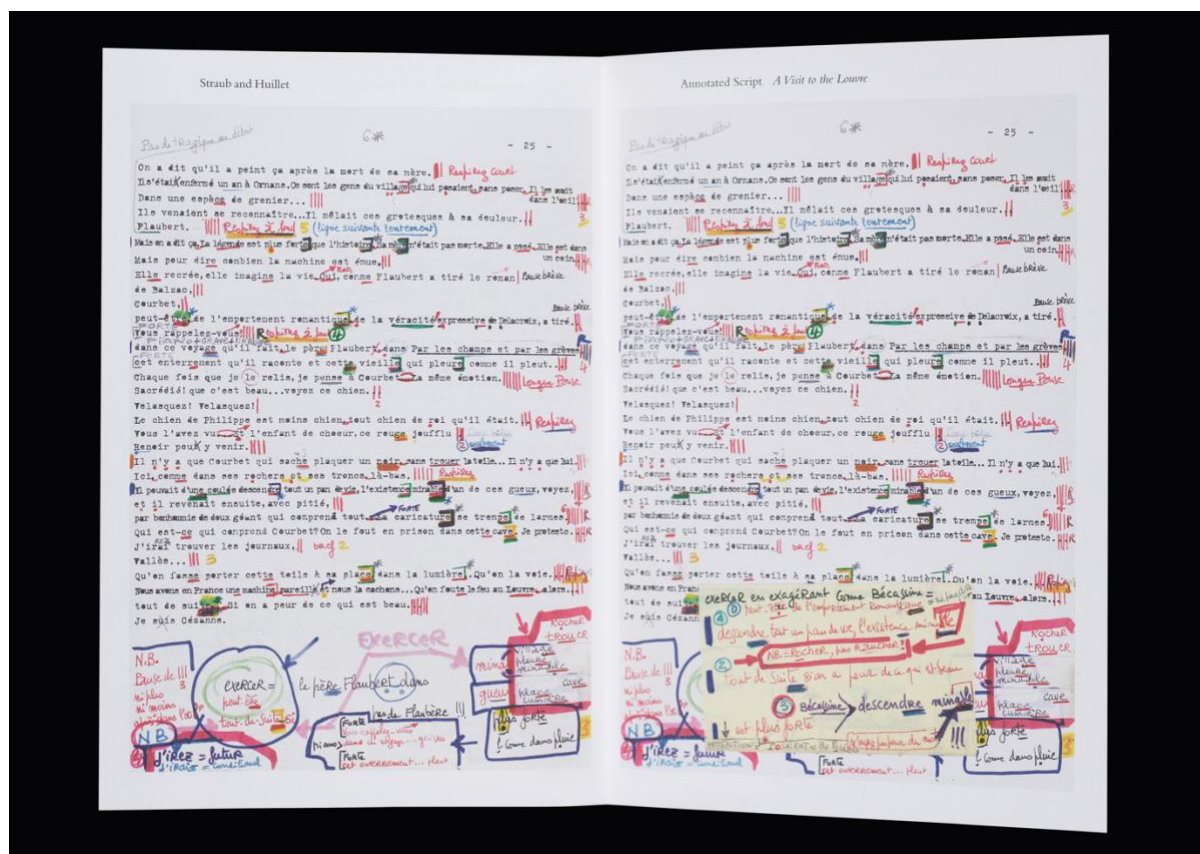 Straub and Huillet
Pas de tragique au début
6*
- 25 -
On a dit qu'il a peint ça après la mort de sa mère. Respirez court
Il s'était enfermé un an à Ornans. Ce sont les gens du village qui lui posaient, sans poser. Il les avait
dans l'oeil
Dans une espèce de grenier...
3
Ils venaient se reconnaître...Il mêlait ces grotesques à sa douleur.
Flaubert. Respirez à fond 5 (ligne suivante lentement)
Mais on a dit ça. La légende est plus forte que l'histoire. Sa mère n'était pas morte. Elle a posé. Elle est dans
un coin.
Mais pour dire combien la machine est émue.
Elle recrée, elle imagine la vie. Oui, comme Flaubert a tiré le roman Pause brève
de Balzac,
Courbet,
Pause brève
peut-être de l'emportement romantique de la véracité expressive de Delacroix, a tiré.
FORTE
Vous rappelez-vous Respirez à fond 4
PIANO
dans ce voyage qu'il fait, le père Flaubert, dans Par les champs et par les grèves
FORTE
cet enterrement qu'il raconte et cette vieille qui pleure comme il pleut..
4
Chaque fois que je le relis, je pense à Courbet. La même émotion. Longue Pause
Sacrédié! que c'est beau...voyez ce chien.
2
Velasquez! Velasquez!
Le chien de Philippe est moins chien, tout chien de roi qu'il était. Respirez
Vous l'avez vu l'enfant de choeur, ce rouge joufflu
2 seulement
Renoir peut y venir.
Il n'y a que Courbet qui sache plaquer un noir sans trouer la toile... Il n'y a que lui.
Ici, comme dans ses rochers et ses troncs, là-bas. Respirez
Il pouvait d'une coulée descendre tout un pan de vie, l'existence minable d'un de ces gueux, voyez,
et il revenait ensuite, avec pitié,
FORTE
6
par bonhomie de doux géant qui comprend tout. La caricature se trempe de larmes. R
Qui est-ce qui comprend Courbet? On le fout en prison dans cette cave. Je proteste.
J'irai trouver les journaux, bref 2
Vallès... 3
Qu'on fasse porter cette toile à sa place dans la lumière. Qu'on la voie.
Nous avons en France une machine pareille et nous la cachons...Qu'on foute le feu au Louvre, alors...
tout de suite Si on a peur de ce qui est beau.
Je suis Cézanne.
Rocher
TROUER
EXERCER
N.B.
3
ni plus
ni moins
EXERCER =
peut-être
tout de suite Si
le père Flaubert dans
pas de Flaubère !!!
minable
gueux
village
pleure
minable
cave
place
lumière
plus forte
! comme dans pluie
FORTE
Vous rappelez-vous
piano dans ce voyage... grèves
FORTE
cet enterrement... pleut
NB
J'irez = futur
J'irais = conditionnel
Annotated Script A Visit to the Louvre
Pas de tragique au début
6*
- 25 -
On a dit qu'il a peint ça après la mort de sa mère. Respirez court
Il s'était enfermé un an à Ornans. Ce sont les gens du village qui lui posaient, sans poser. Il les avait
dans l'oeil
Dans une espèce de grenier...
3
Ils venaient se reconnaître...Il mêlait ces grotesques à sa douleur.
Flaubert. Respirez à fond 5 (ligne suivante lentement)
Mais on a dit ça. La légende est plus forte que l'histoire. Sa mère n'était pas morte. Elle a posé. Elle est dans
un coin.
Mais pour dire combien la machine est émue.
Elle recrée, elle imagine la vie. Oui, comme Flaubert a tiré le roman Pause brève
de Balzac,
Courbet,
Pause brève
peut-être de l'emportement romantique de la véracité expressive de Delacroix, a tiré.
FORTE
Vous rappelez-vous Respirez à fond 4
PIANO
dans ce voyage qu'il fait, le père Flaubert, dans Par les champs et par les grèves
FORTE
cet enterrement qu'il raconte et cette vieille qui pleure comme il pleut..
4
Chaque fois que je le relis, je pense à Courbet. La même émotion. Longue Pause
Sacrédié! que c'est beau...voyez ce chien.
2
Velasquez! Velasquez!
Le chien de Philippe est moins chien, tout chien de roi qu'il était. Respirez
Vous l'avez vu l'enfant de choeur, ce rouge joufflu
2 seulement
Renoir peut y venir.
Il n'y a que Courbet qui sache plaquer un noir sans trouer la toile... Il n'y a que lui.
Ici, comme dans ses rochers et ses troncs, là-bas. Respirez
Il pouvait d'une coulée descendre tout un pan de vie, l'existence minable d'un de ces gueux, voyez,
et il revenait ensuite, avec pitié,
FORTE
6
par bonhomie de doux géant qui comprend tout. La caricature se trempe de larmes. R
Qui est-ce qui comprend Courbet? On le fout en prison dans cette cave. Je proteste.
J'irai trouver les journaux, bref 2
Vallès... 3
Qu'on fasse porter cette toile à sa place dans la lumière. Qu'on la voie.
Nous avons en France au Louvre, alors...
tout de sui
Je suis Cézanne.
EXERCER en exagérant comme Bécassine =
1 peut-être de l'emportement Romantique
descendre tout un pan de vie, l'existence minable
NB = Rocher, pas Raucher!
2 tout de suite Si on a peur de ce qui est beau
3 Bécassine descendre minable
est plus forte
!!!
Rocher
TROUER
N.B.
3
ni plus
ni moins
EXERCER =
peut-être
tout de suite
village
pleure
minable
cave
place
lumière
plus forte
! comme dans pluie
FORTE
cet enterrement... pleut
NB
J'irez = futur
J'irais = conditionnel